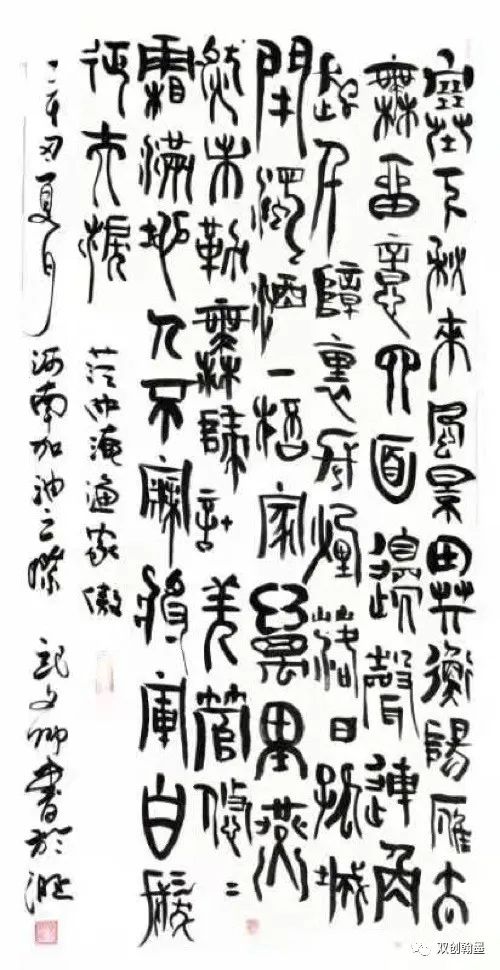 塞下秋來風景異衡陽雁去
無留意四面邊聲連角
起千嶂裏長煙落日孤城
閉濁酒一杯家萬里燕
然未勒無歸計羌管悠〻
霜滿地人不寐將軍白髮
征夫淚
范仲淹漁家傲
年丑夏日河南加油之際 文卿書於
双创翰墨